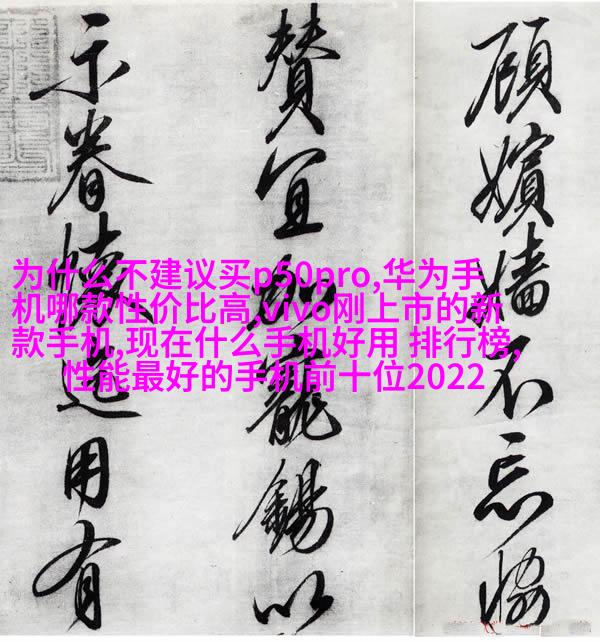 顧嬪嬙不忘協
贊宜加寵錫以
示眷懷用有
为什么不建议买p50pro,华为手
机哪款性价比高,vivo刚上市的新
款手机,现在什么手机好用 排行榜,
性能最好的手机前十位2022